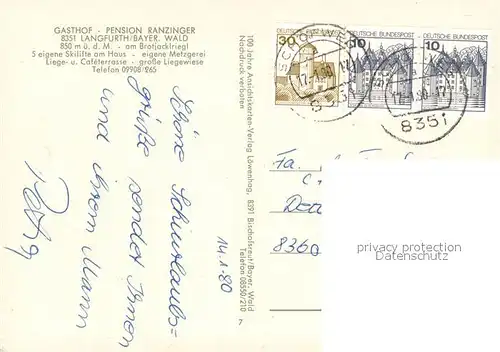 GASTHOF - PENSION RANZINGER
8351 LANGFURTH/BAYER. WALD
850 m ü. d. M. - am Brotjacklriegl
5 eigene Skilifte am Haus - eigene Metzgerei
Liege- u. Caféterrasse - große Liegewiese
Telefon 09908/265
Schöne Skiurlaubs-
grüße sendet Ihnen
und ihrem Mann
14.1.80
100 Jahre Ansichtskarten-Verlag Löwenhag, 8391 Bischofsreut/Bayer. Wald
Nachdruck verboten
Telefon 08550/210
7
30
DEUTSCHE BUNDESPOST
10
DEUTSCHE BUNDESPOST
10
DEUTSCHE BUNDESPOST
8351
Fa.
8360
privacy protection
Datenschutz